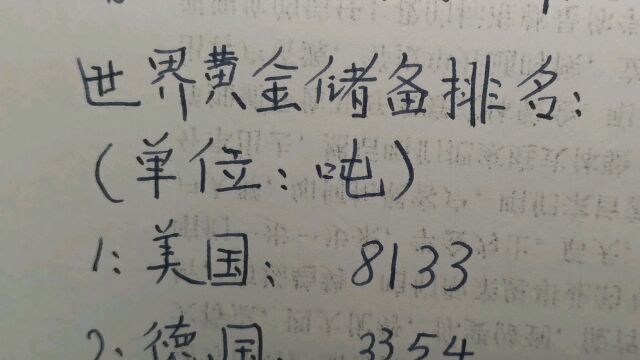 世界黄金储备排名:
(单位:吨)
1:美国: 8133
2:德国: 3354